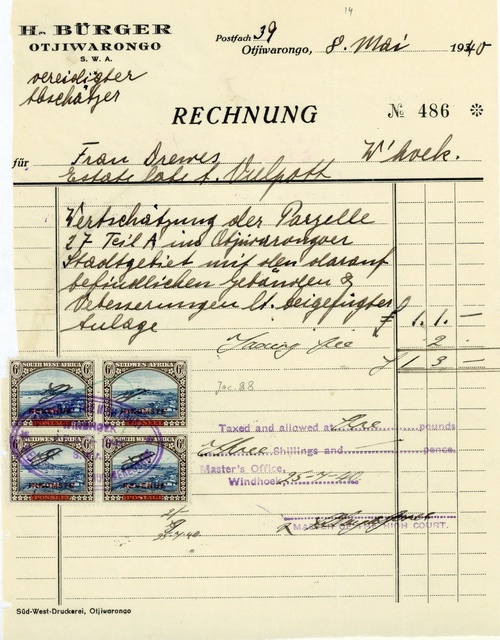 H. BÜRGER
OTJIWARONGO
S. W. A.
vereidigter
Abschätzer
Postfach 39
Otjiwarongo, 8. Mai 1940
RECHNUNG
№ 486
für Frau Drewes W'hoek.
Estate late A. Vulpott
Wertschätzung der Parzelle
27 Teil A im Otjiwarongoer
Stadtgebiet mit den darauf
befindlichen Gebäuden &
Verbesserungen lt. beigefügter
Anlage £ 1. 1. —
Taxing fee 2 -
£ 1 3 —
SOUTH WEST AFRICA
SUIDWES AFRIKA
6d
POSTAGE
Taxed and allowed at One pounds
Three Shillings and pence.
Master's Office,
Windhoek, 25-7-40
MASTER OF THE HIGH COURT.
Süd-West-Druckerei, Otjiwarongo